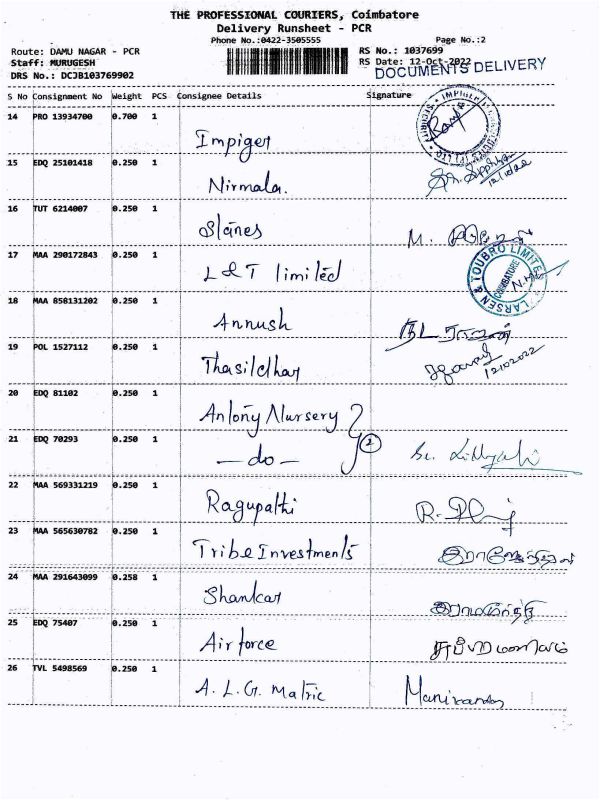 THE PROFESSIONAL COURIERS, Coimbatore
Delivery Runsheet - PCR
Phone No.:0422-3505555
Page No.:2
Route: DAMU NAGAR - PCR
RS No.: 1037699
Staff: MURUGESH
RS Date: 12-Oct-2022
DRS No.: DCJB103769902
DOCUMENTS DELIVERY
S No Consignment No Weight PCS Consignee Details Signature
14 PRO 13934700 0.700 1 Impiger
IMPIGER SECURITY
15 EDQ 25101418 0.250 1 Nirmala.
16 TUT 6214007 0.250 1 Stanes M.
17 MAA 290172843 0.250 1 L&T limited
LARSEN & TOUBRO LIMITED COIMBATORE
18 MAA 858131202 0.250 1 Annush
19 POL 1527112 0.250 1 Thasildhar
12/10/2022
20 EDQ 81102 0.250 1 Antony Nursery
21 EDQ 70293 0.250 1 -do- 2
22 MAA 569331219 0.250 1 Ragupathi R.
23 MAA 565630782 0.250 1 Tribe Investments
24 MAA 291643099 0.258 1 Shankar
25 EDQ 75407 0.250 1 Airforce
26 TVL 5498569 0.250 1 A.L.G. Matric